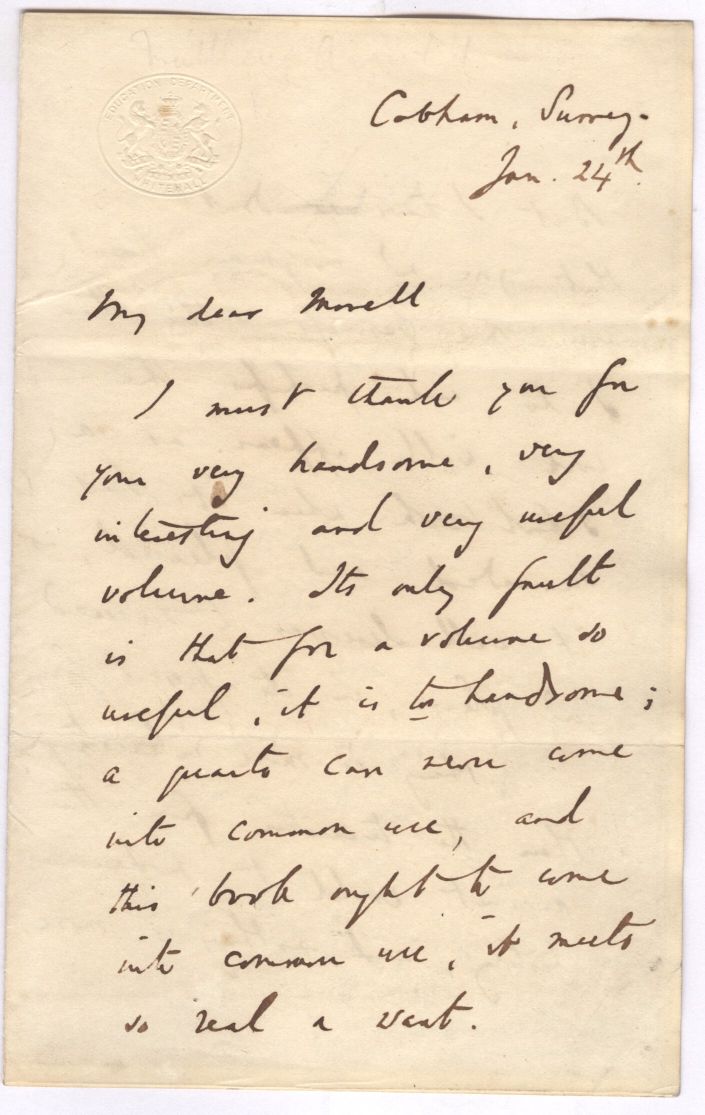 EDUCATION DEPARTMENT
WHITEHALL
Cobham, Surrey.
Jan. 24th.
My dear Morell
I must thank you for
your very handsome, very
interesting and very useful
volume. Its only fault
is that for a volume so
useful, it is too handsome;
a quarto can never come
into common use, and
this book ought to come
into common use, it meets
so real a want.